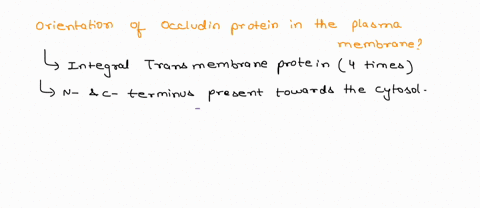 Orientation of Occludin protein in the plasma
membrane?
↳ Integral Transmembrane protein (4 times)
↳ N- & C- terminus present towards the cytosol.